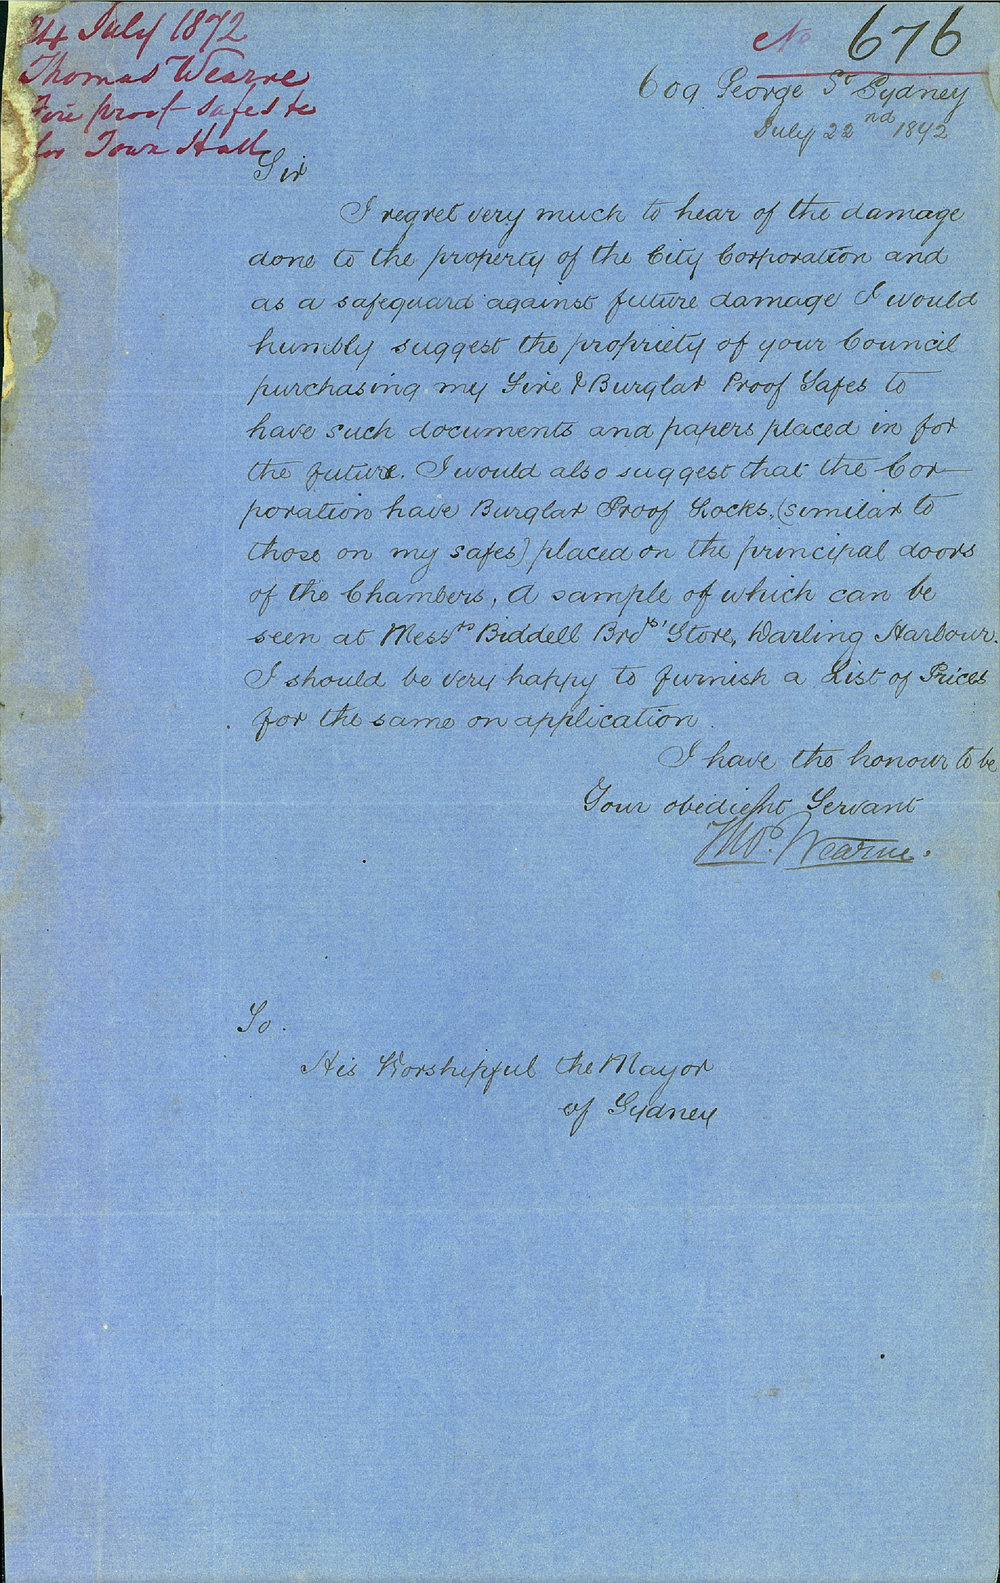 24 July 1872
Thomas Wearne
Fire proof safes &c
for Town Hall
No 676
609 George St Sydney
July 22nd 1872
Sir
I regret very much to hear of the damage
done to the property of the City Corporation and
as a safeguard against future damage I would
humbly suggest the propriety of your Council
purchasing my Fire & Burglar Proof Safes to
have such documents and papers placed in for
the future. I would also suggest that the Cor-
poration have Burglar Proof Locks, (similar to
those on my safes) placed on the principal doors
of the Chambers, A sample of which can be
seen at Messrs Biddell Bros' Store, Darling Harbour.
I should be very happy to furnish a List of Prices
for the same on application.
I have the honour to be
Your obedient Servant
Thos. Wearne.
To.
His Worshipful the Mayor
of Sydney